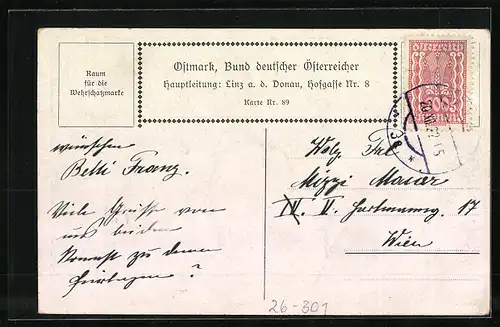 Raum
für die
Wehrschatzmarke
Ostmark, Bund deutscher Österreicher
Hauptleitung: Linz a. d. Donau, Hofgasse Nr. 8
Karte Nr. 89
österreich
wünschen
Betti Franz.
Viele Grüße von
uns beiden
kommst zu denn
?
Mizzi Maier
IV. V. 17
Wien
26-301